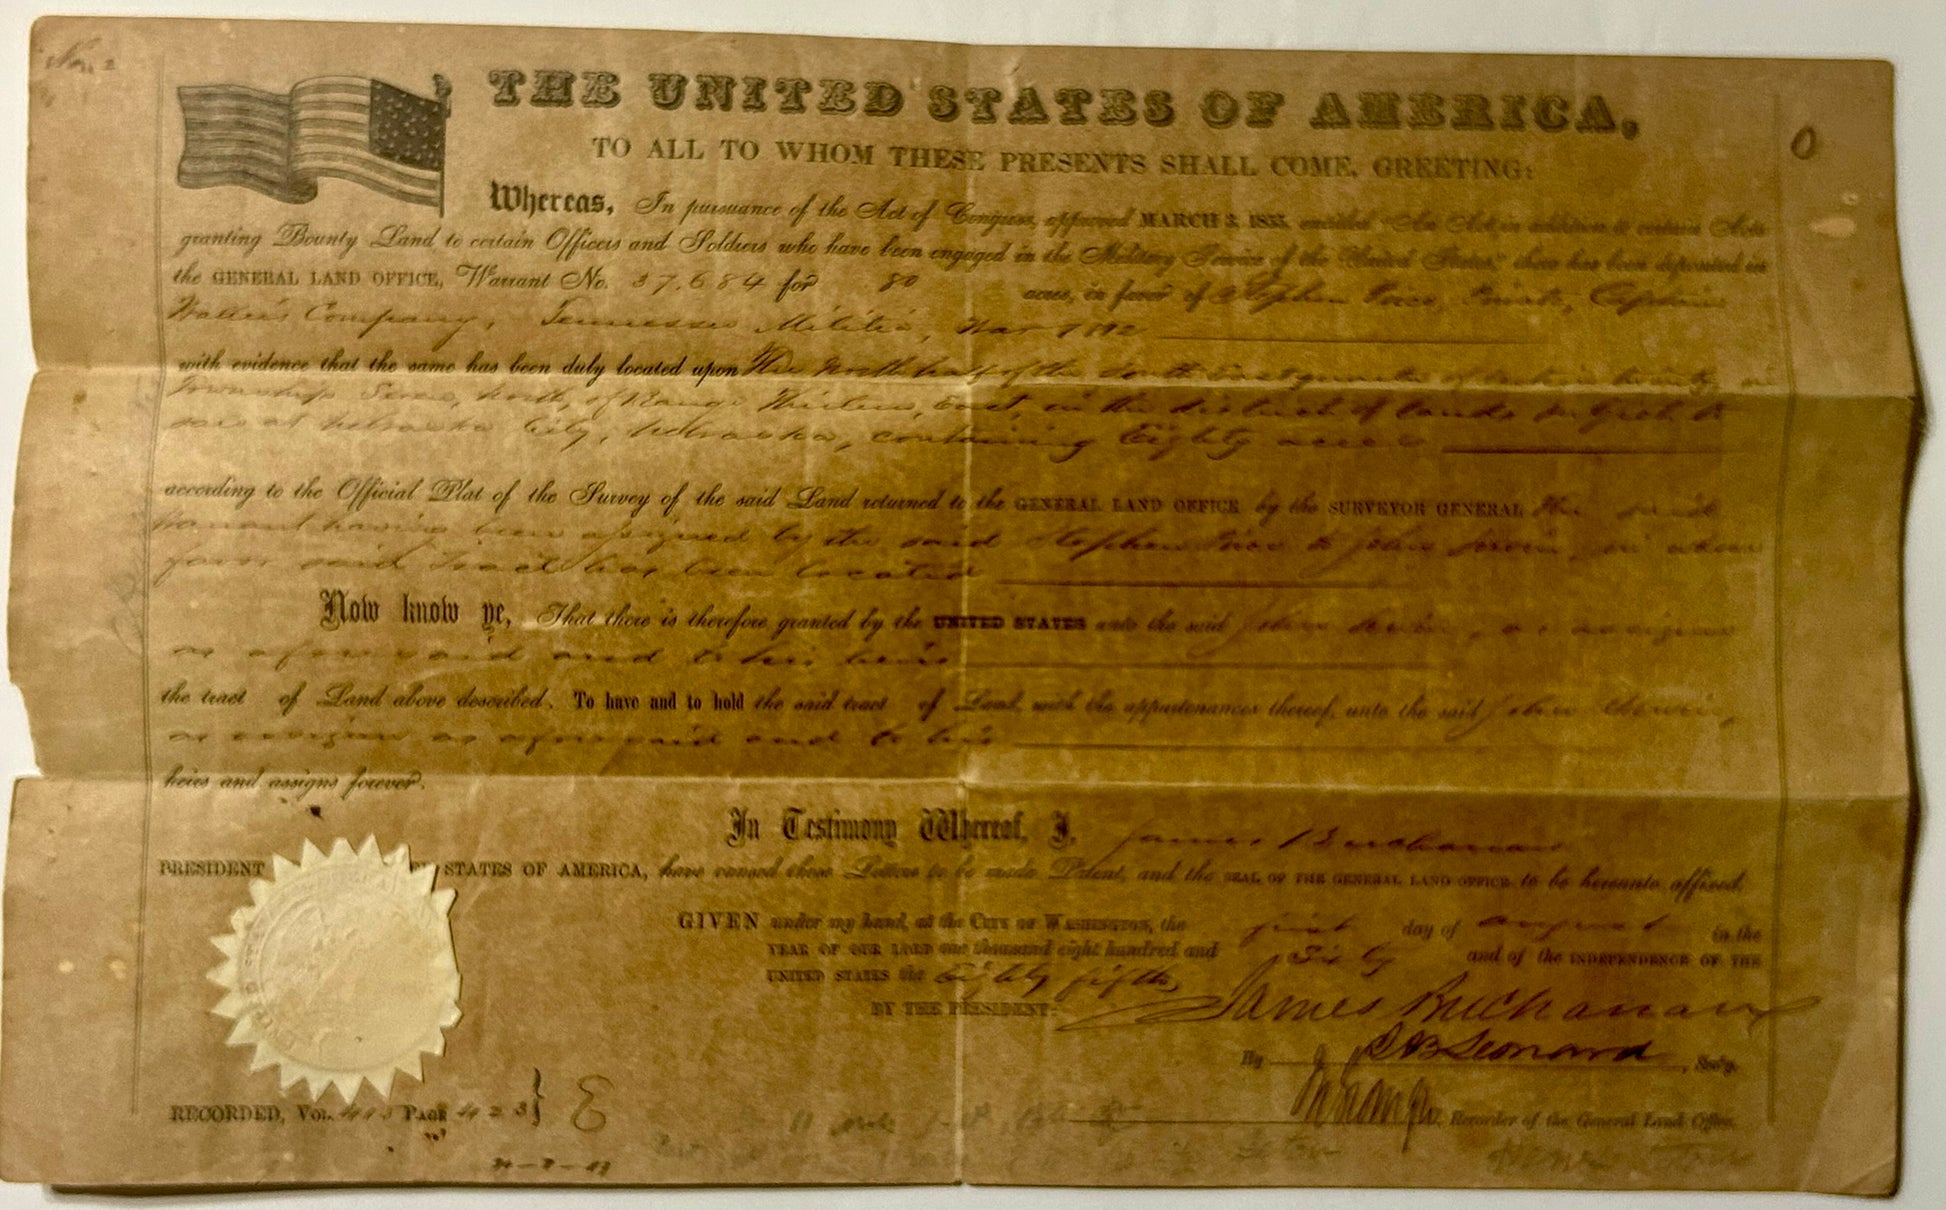 THE UNITED STATES OF AMERICA,
TO ALL TO WHOM THESE PRESENTS SHALL COME, GREETING:
Whereas, In pursuance of the Act of Congress, approved MARCH 3, 1855, entitled "An Act in addition to certain Acts
granting Bounty Land to certain Officers and Soldiers who have been engaged in the Military Service of the United States," there has been deposited in
the GENERAL LAND OFFICE, Warrant No. 37.684 for 80 acres, in favor of Stephen Private, Captain
Company, Tennessee Militia, War 1812
with evidence that the same has been duly located upon the North half of the South East quarter of Section twenty, in
Township Seven, North, of Range Thirteen, East, in the district of lands Subject to
sale at Nebraska City, Nebraska, containing Eighty acres
according to the Official Plat of the Survey of the said Land returned to the GENERAL LAND OFFICE by the SURVEYOR GENERAL the said
Warrant having been assigned by the said Stephen to John in whose
favor said Tract has been located
Now know ye, That there is therefore granted by the UNITED STATES unto the said John as assignee
as aforesaid and to his heirs
the tract of Land above described. To have and to hold the said tract of Land, with the appurtenances thereof, unto the said John
as assignee as aforesaid and to his
heirs and assigns forever.
In Testimony Whereof, I, James Buchanan
PRESIDENT STATES OF AMERICA, have caused these Letters to be made Patent, and the SEAL OF THE GENERAL LAND OFFICE to be hereunto affixed.
GIVEN under my hand, at the CITY OF WASHINGTON, the first day of August in the
YEAR OF OUR LORD one thousand eight hundred and Sixty and of the INDEPENDENCE OF THE
UNITED STATES the Eighty fifth,
BY THE PRESIDENT: James Buchanan
By Leonard, Sec'y.
RECORDED, Vol. PAGE 423 Recorder of the General Land Office.